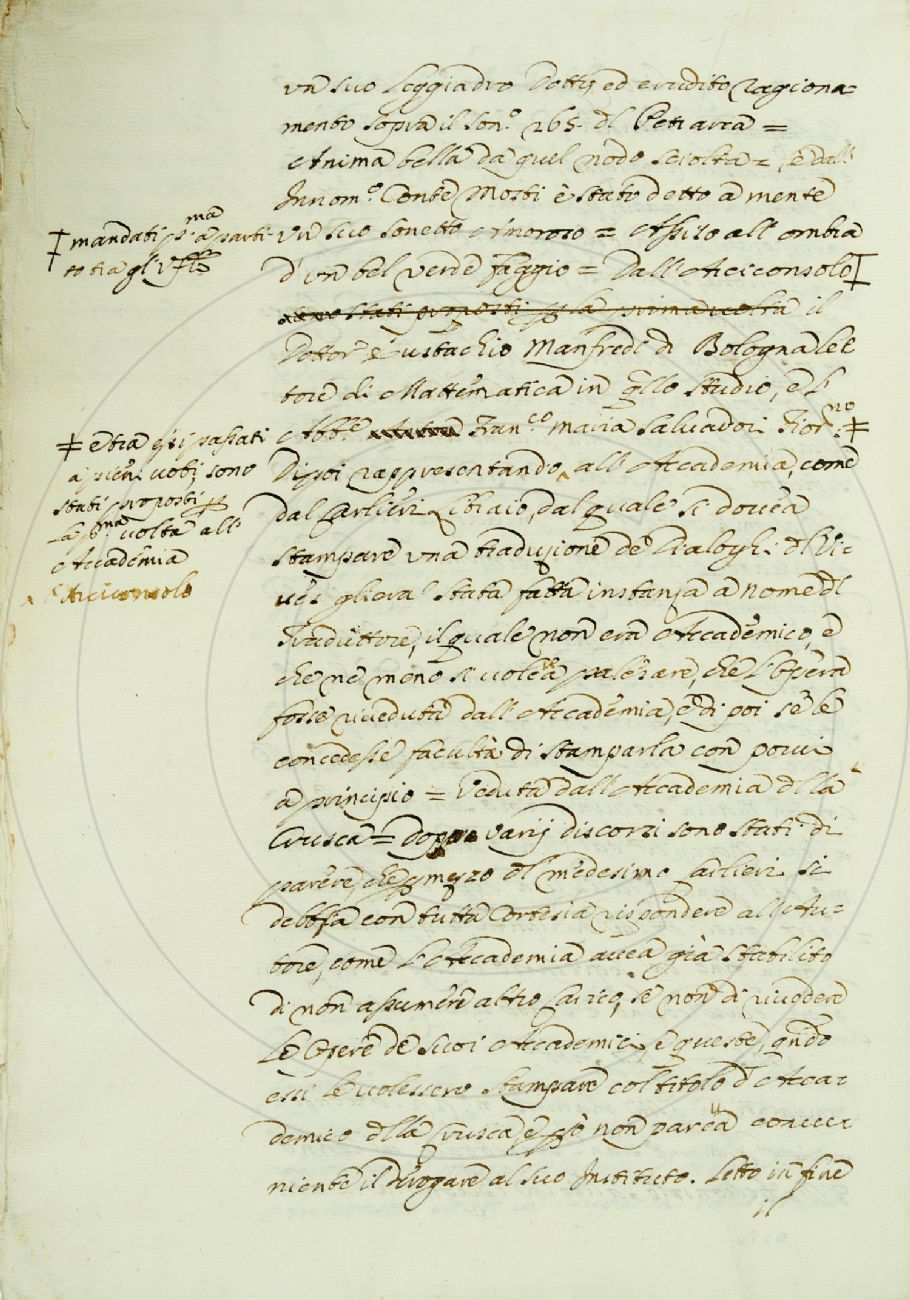 un suo leggiadro Dotto, ed erudito ragiona=
mento sopra il Son.º 265. dl Petrarca =
Anima bella da quel nodo sciolta = e dall'
Innom.º Conte Mosti è stato detto a mente
un suo sonetto Amoroso = Assiso all'ombra
d'un bel verde faggio = Dall'Arciconsolo
stati proposti p la prima volta il
Dottor Eustachio Manfredi di Bologna let
tore di Mattematica in qllo studio, e l'
Abb.e Fran.co Maria Salvadori Fior.no ‡
Dipoi rappresentando all'Accademia, come
dal Carlieri Libraio, dal quale si doveva
stampare una traduzione de' Dialoghi dl Vi=
ves gliera stata fatta instanza a nome dl
Traduttore, il quale non era Accademico, e
che ne meno si volea palesare, che l'Opera
fosse riveduta dall'Accademia, e di poi se le
concedesse facultà di stamparla con porvi
a principio = Veduta dall'Accademia dlla
Crusca = dopo varij discorsi sono stati di
parere, che p mezzo dl medesimo Carlieri si
debba con tutta Cortesia rispondere all'Au=
tore, come l'Accademia avea già stabilito
di non assumere altro carico, se non di rivedere
le Opere de suoi Accademici, e queste, qndo
essi le volessero stampare col titolo d'Acca=
demico dlla Crusca, e pciò non parea conve=
niente il derogare al suo Instituto. Letto in fine
il
‡ mandati p.ma a parti
to tra gl'Uffli
‡ e tra essi passati
a pieni voti, sono
stati proposti p
la p.ma volta all'
Accademia
^ l'Arciconsolo